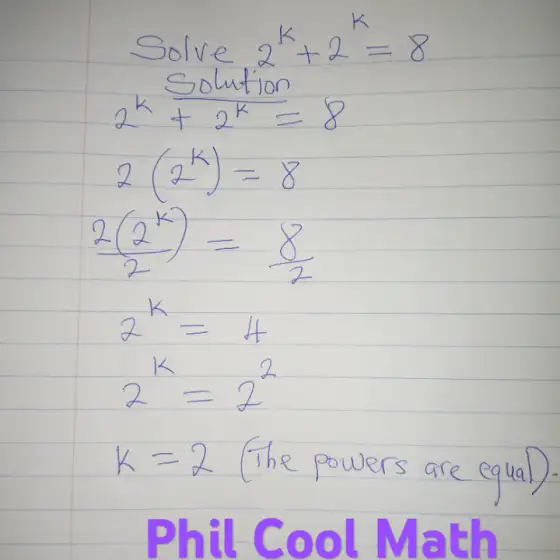 Solve 2^k + 2^k = 8
Solution
2^k + 2^k = 8
2 (2^k) = 8
2(2^k)/2 = 8/2
2^k = 4
2^k = 2^2
k = 2 (The powers are equal).
Phil Cool Math